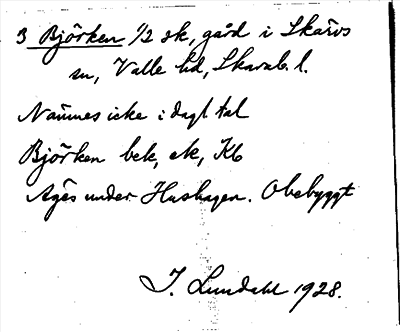 3 Björken 1/2 sk, gård i Skärvs
sn, Valle hd, Skarab. l.
Nämnes icke i dagl tal
Björken bek, ek, Kb
Äges under Hushagen. Obebyggt
J. Lundahl 1928.